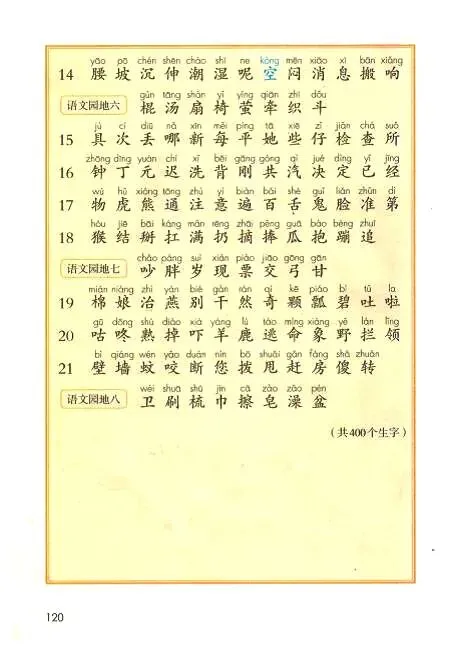 yāo pō chén shēn cháo shī ne kòng mēn xiāo xi bān xiǎng
14 腰 坡 沉 伸 潮 湿 呢 空 闷 消 息 搬 响
gùn tāng shàn yǐ yíng qiān zhī dǒu
语文园地六 棍 汤 扇 椅 萤 牵 织 斗
jù cì diū nǎ xīn měi píng tā xiē zǐ jiǎn chá suǒ
15 具 次 丢 哪 新 每 平 她 些 仔 检 查 所
zhōng dīng yuán chí xǐ bēi gāng gòng qì jué dìng yǐ jīng
16 钟 丁 元 迟 洗 背 刚 共 汽 决 定 已 经
wù hǔ xióng tōng zhù yì biàn bǎi shé guǐ liǎn zhǔn dì
17 物 虎 熊 通 注 意 遍 百 舌 鬼 脸 准 第
hóu jiē bāi káng mǎn rēng zhāi pěng guā bào bèng zhuī
18 猴 结 掰 扛 满 扔 摘 捧 瓜 抱 蹦 追
chǎo pàng suì xiàn piào jiāo gōng gān
语文园地七 吵 胖 岁 现 票 交 弓 甘
mián niáng zhì yàn bié gàn rán qí kē piáo bì tǔ la
19 棉 娘 治 燕 别 干 然 奇 颗 瓢 碧 吐 啦
gū dōng shú diào xià yáng lù táo mìng xiàng yě lán lǐng
20 咕 咚 熟 掉 吓 羊 鹿 逃 命 象 野 拦 领
bì qiáng wén yǎo duàn nín bō shuǎi gǎn fáng shǎ zhuǎn
21 壁 墙 蚊 咬 断 您 拨 甩 赶 房 傻 转
wèi shuā shū jīn cā zào zǎo pén
语文园地八 卫 刷 梳 巾 擦 皂 澡 盆
(共400个生字)
120